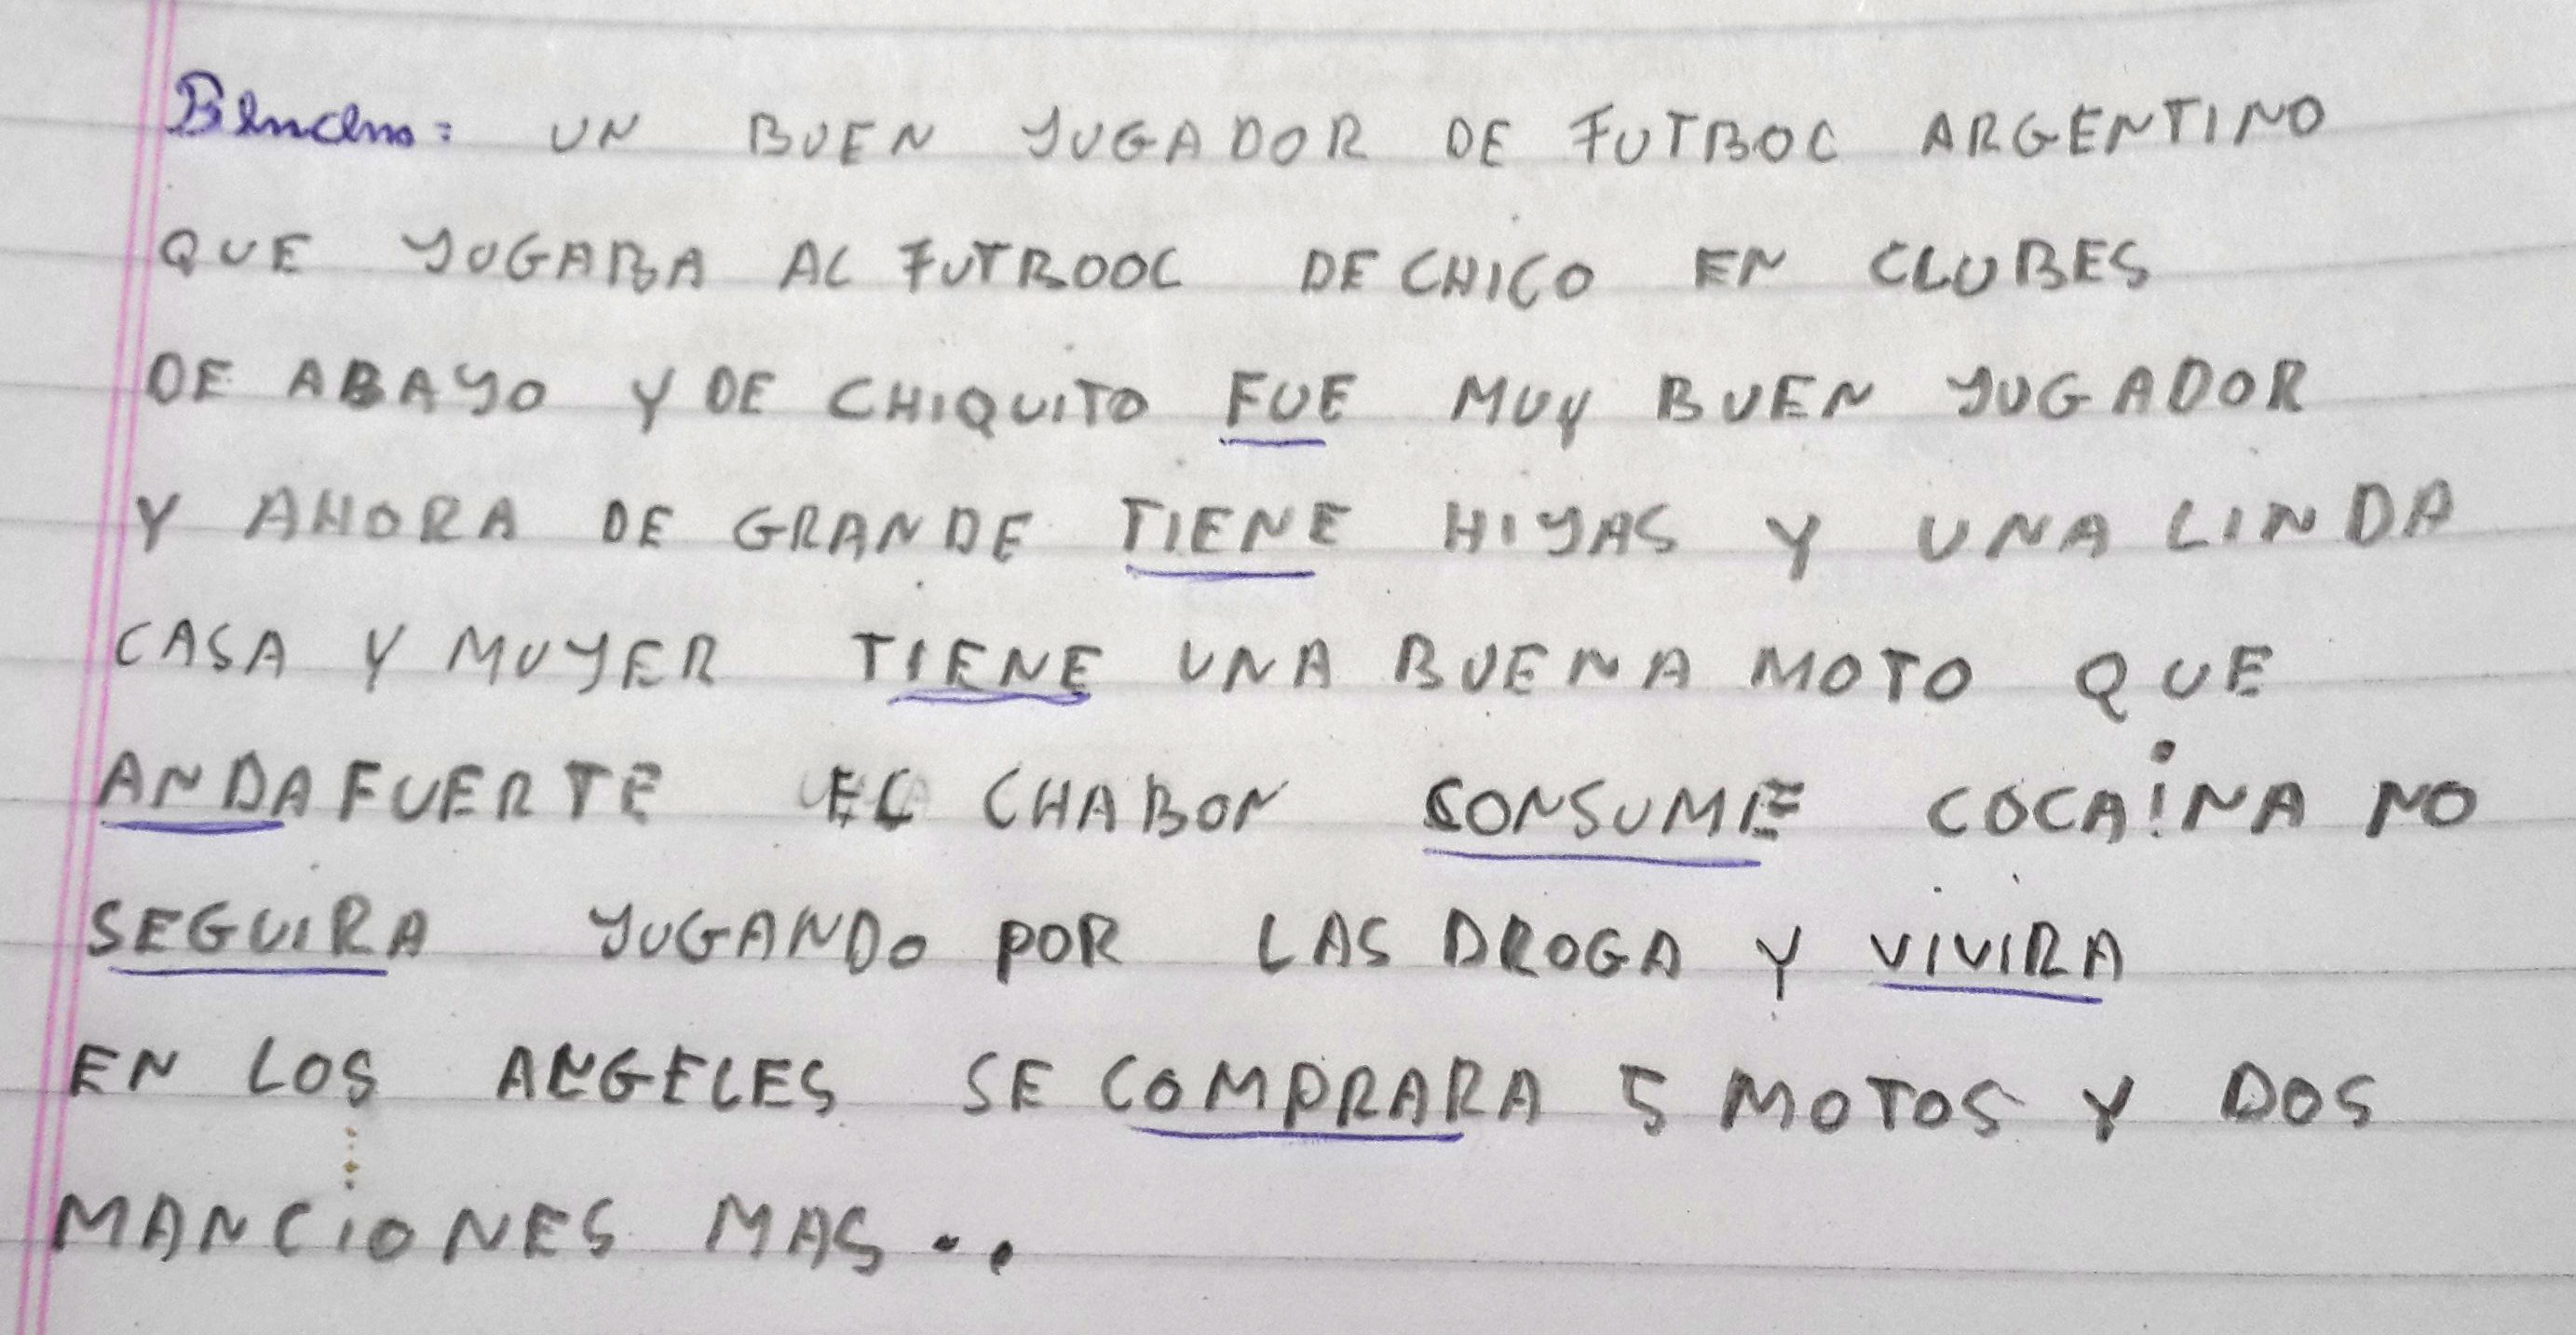 UN BUEN JUGADOR DE FUTBOL ARGENTINO
QUE JUGABA AL FUTBOOL DE CHICO EN CLUBES
DE ABAJO Y DE CHIQUITO FUE MUY BUEN JUGADOR
Y AHORA DE GRANDE TIENE HIJAS Y UNA LINDA
CASA Y MUJER TIENE UNA BUENA MOTO QUE
ANDA FUERTE EL CHABON CONSUME COCAiNA NO
SEGUIRA JUGANDO POR LAS DROGA Y VIVIRA
EN LOS ANGELES SE COMPRARA 5 MOTOS Y DOS
MANCIONES MAS..